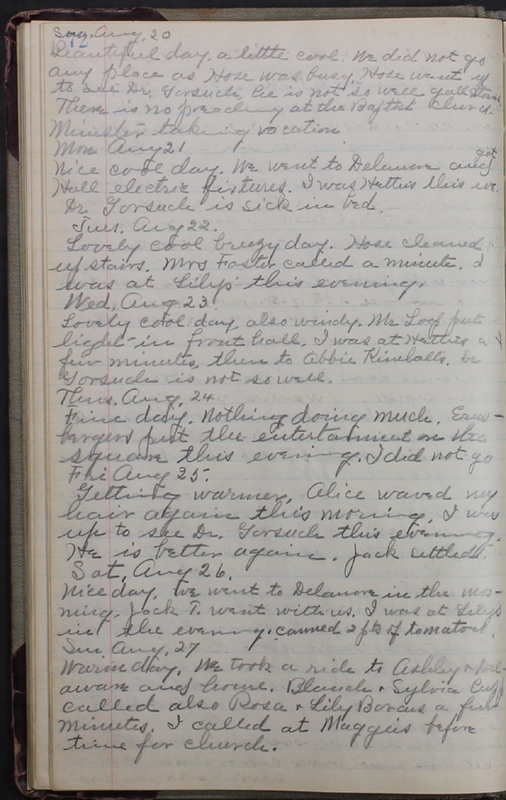 Sun. Aug. 20
Beautiful day, a little cool. We did not go
any place as Hose was busy. Hose went up
to see Dr. Gorsuch. He is not so well gall stones.
There is no preaching at the Baptist Church.
Minister taking vacation
Mon Aug 21
Nice cool day. We went to Delaware and got
Hall electric fixtures. I was Hatties this eve.
Dr. Gorsuch is sick in bed.
Tues. Aug 22.
Lovely cool breezy day. Hose cleaned
up stairs. Mrs Foster called a minute. I
was at Lilys this evening.
Wed. Aug 23
Lovely cool day also windy. Mr Loof put
light in front hall. I was at Hatties a
few minutes, then to Abbie Kimballs. Dr
Gorsuch is not so well.
Thurs. Aug. 24
Fine day. Nothing doing much.
bergers put the entertainment on the
square this evening. I did not go
Fri Aug 25.
Getting warmer. Alice waved my
hair again this morning. I was
up to see Dr. Gorsuch this evening.
He is better again. Jack settled.
Sat. Aug 26.
Nice day. We went to Delaware in the mor-
ning. Jack T. went with us. I was at Lilys
in the evening. canned 2 pts of tomatoes.
Sun Aug. 27
Warm day. We took a ride to Ashley & Del-
aware and home. Blanch & Sylvia Cupp
called also Rosa & Lily Borcus a few
minutes. I called at Maggies before
time for church.